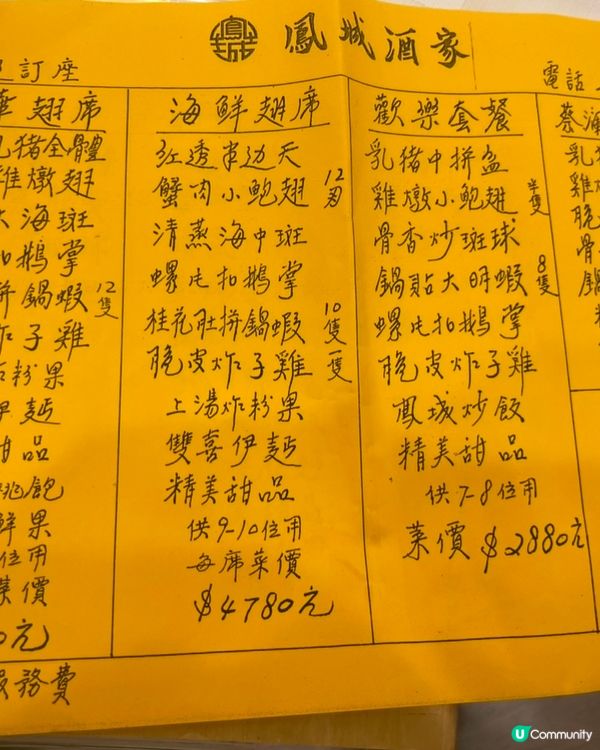 鳳城酒家
訂座
電話
翅席
乳猪全體
雞燉翅
大海斑
扣鵝掌
拼鍋蝦 12隻
炸子雞
粉果
伊麵
甜品
桃飽
鮮果
位用
菜價
0元
服務費
海鮮翅席
紅透半边天
蟹肉小鮑翅 12刄
清蒸海中斑
螺片扣鵝掌
桂花肚拼鍋蝦 10隻
脆皮炸子雞 一隻
上湯炸粉果
雙喜伊麵
精美甜品
供9-10位用
每席菜價
$4780元
歡樂套餐
乳猪中拼盆
雞燉小鮑翅 半隻
骨香炒斑球
鍋貼大明蝦 8隻
螺片扣鵝掌
脆皮炸子雞
鳳城炒飯
精美甜品
供7-8位用
菜價$2880元
蔡瀾
乳猪
雞燉
脆
骨
鍋
U Community